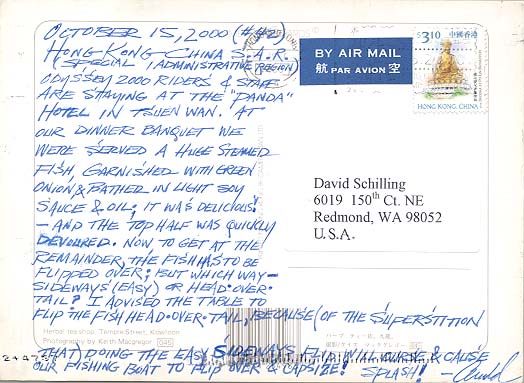 OCTOBER 15, 2000 (#42)
HONG KONG CHINA S.A.R.
(SPECIAL ADMINISTRATIVE REGION)
ODYSSEY 2000 RIDERS & STAFF
ARE STAYING AT THE "PANDA"
HOTEL IN TSUEN WAN. AT
OUR DINNER BANQUET WE
WERE SERVED A HUGE STEAMED
FISH, GARNISHED WITH GREEN
ONION & BATHED IN LIGHT SOY
SAUCE & OIL; IT WAS DELICIOUS!
– AND THE TOP HALF WAS QUICKLY
DEVOURED. NOW TO GET AT THE
REMAINDER, THE FISH HAS TO BE
FLIPPED OVER; BUT WHICH WAY–
SIDEWAYS (EASY) OR HEAD-OVER-
TAIL? I ADVISED THE TABLE TO
FLIP THE FISH HEAD-OVER-TAIL, BECAUSE (OF THE SUPERSTITION
THAT) DOING THE EASY SIDEWAYS FLIP WILL CURSE & CAUSE
OUR FISHING BOAT TO FLIP OVER & CAPSIZE! SPLASH!
BY AIR MAIL
航 PAR AVION 空
$3.10 中國香港
HONG KONG, CHINA
David Schilling
6019 150th Ct. NE
Redmond, WA 98052
U.S.A.
Herbal teashop, Temple Street, Kowloon
Photography by Keith Macgregor 045